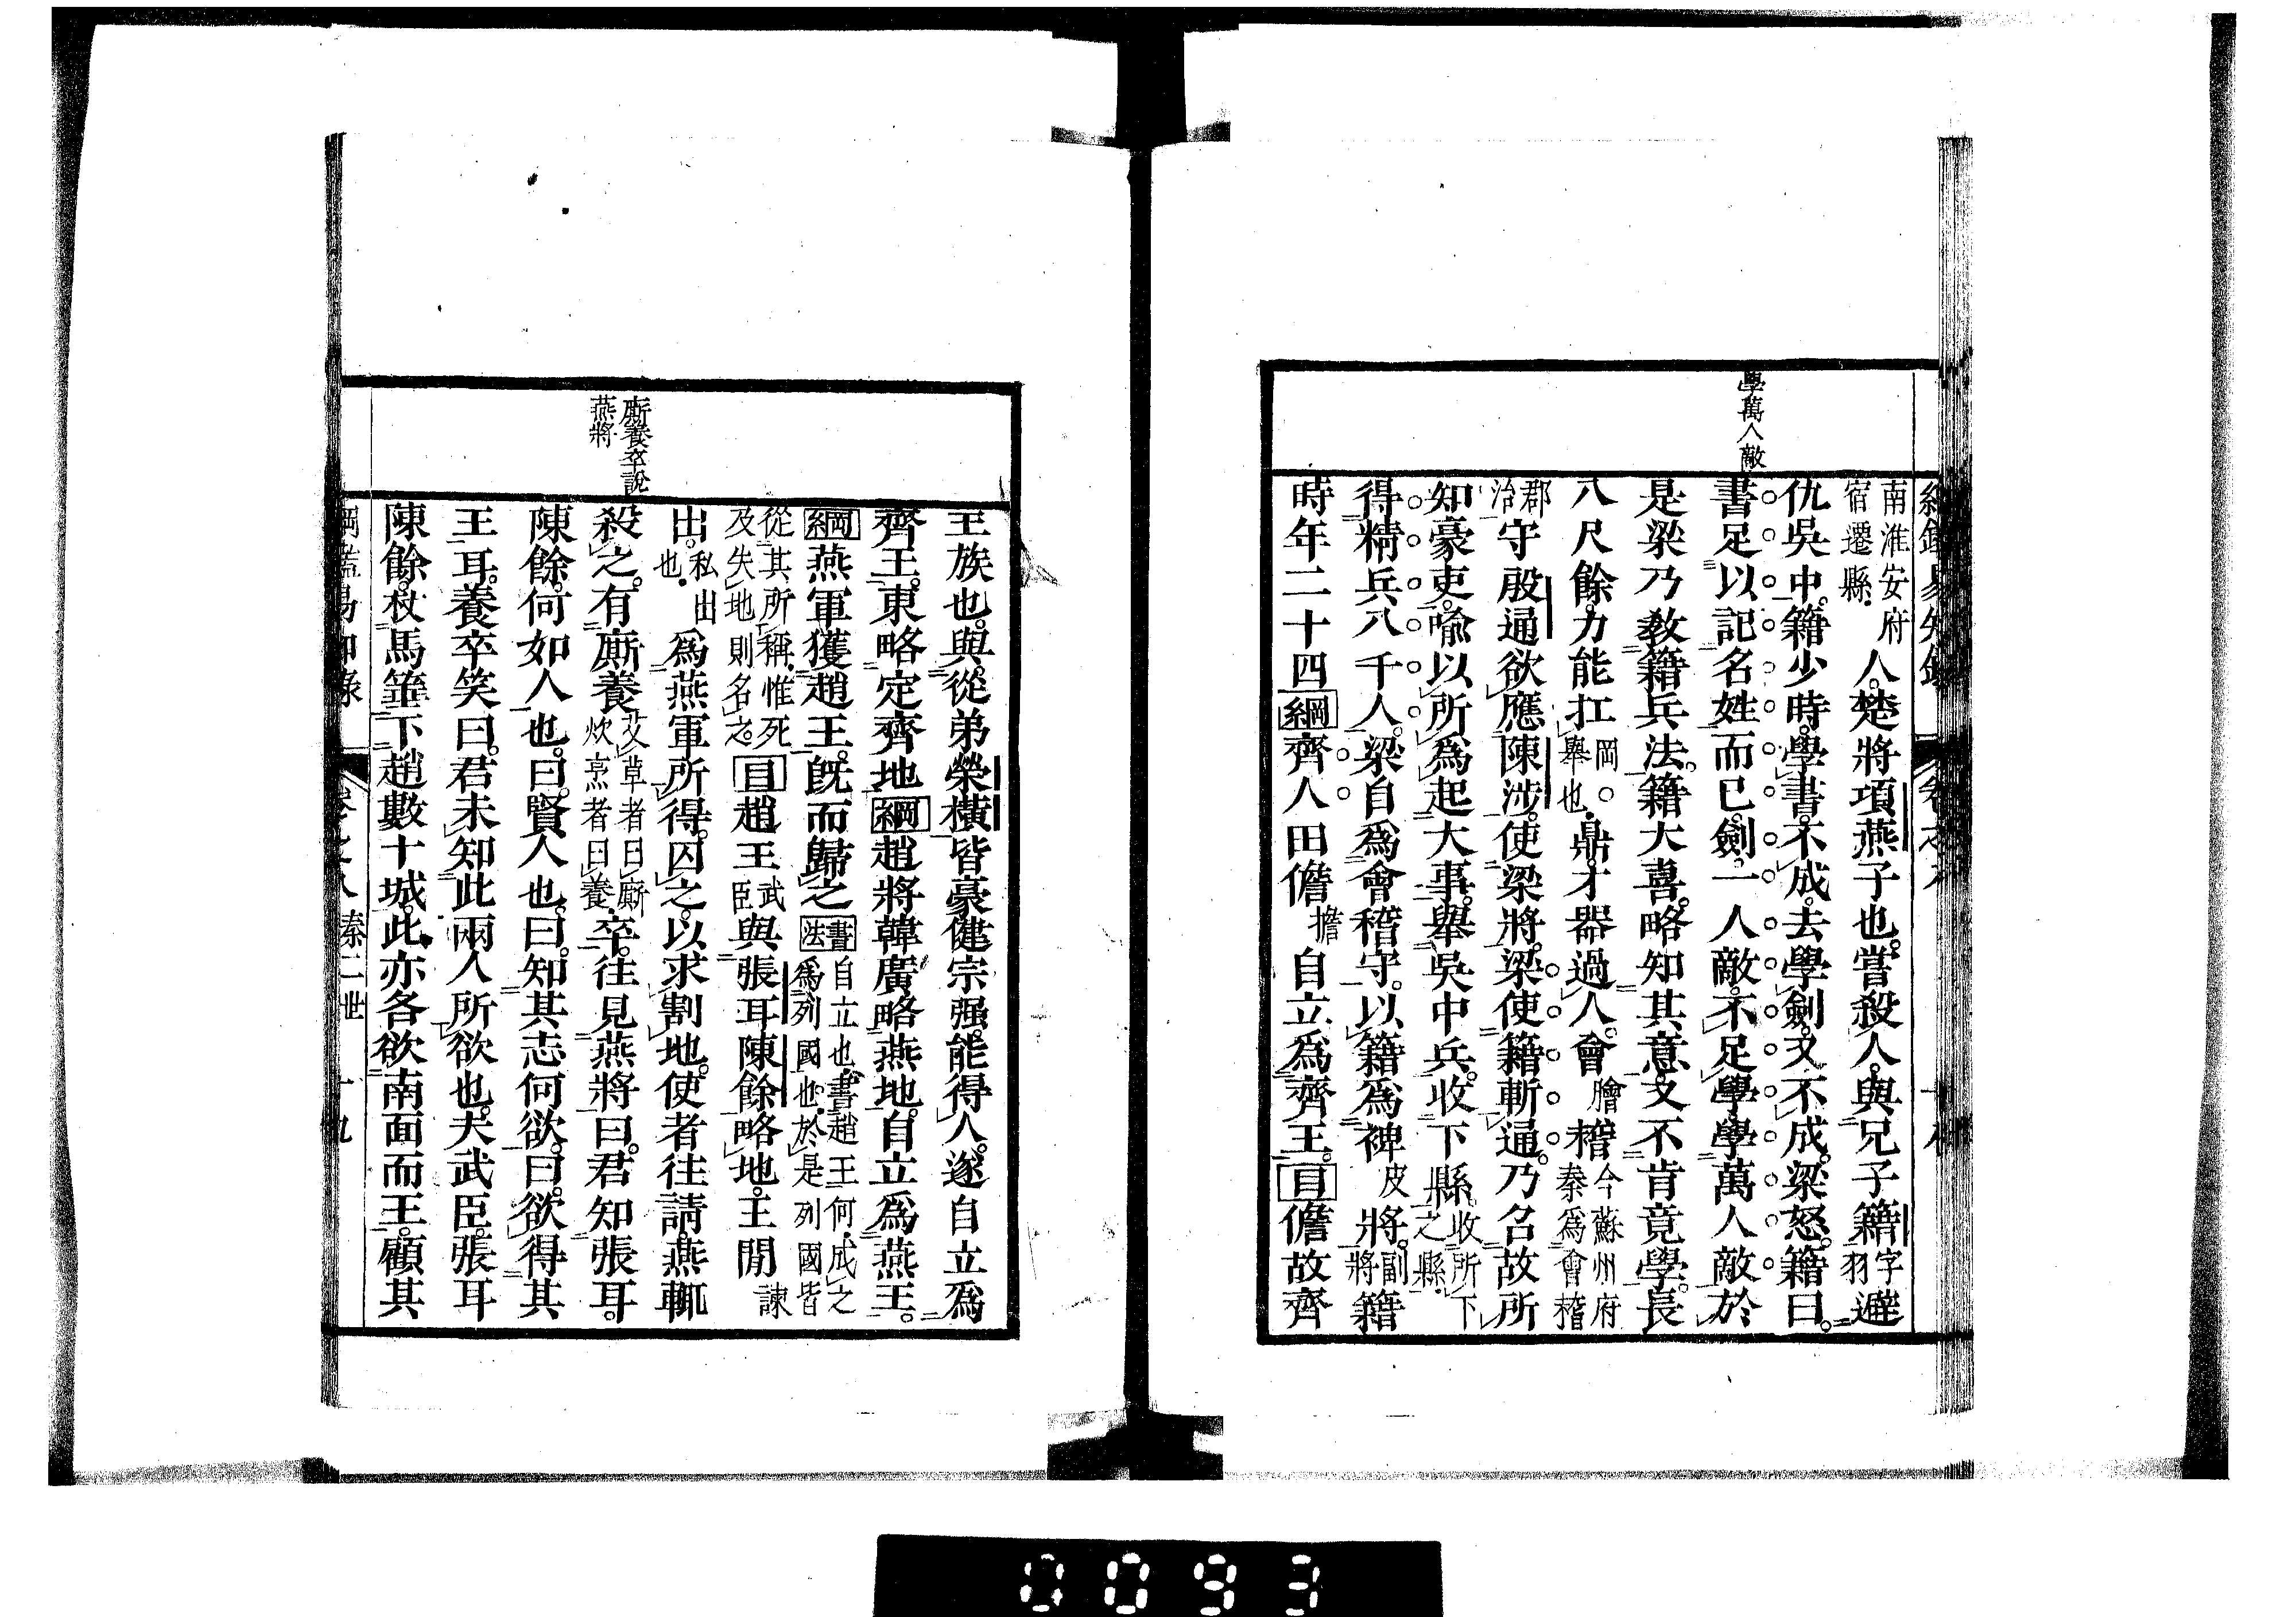 學萬人敵
南淮安府
宿遷縣
人楚將項燕子也嘗殺人與兄子籍字羽避
仇吳中籍少時學書不成去學劍又不成梁怒籍曰
書足以記名姓而已劍一人敵不足學學萬人敵於
是梁乃敎籍兵法籍大喜略知其意又不肯竟學長
八尺餘力能扛岡舉也鼎才器過人會膾稽今蘇州府秦爲會稽
郡治守殷通欲應陳涉使梁將梁使籍斬通乃召故所
知豪吏喩以所爲起大事舉吳中兵收下縣收所下之縣
得精兵八千人梁自爲會稽守以籍爲裨皮將副將籍
時年二十四綱齊人田儋擔自立爲齊王目儋故齊
廝養卒說
燕將
王族也與從弟榮橫皆豪健宗强能得人遂自立爲
齊王東略定齊地綱趙將韓廣略燕地自立爲燕王
綱燕軍獲趙王旣而歸之書法自立也書趙王何成之爲列國也於是列國皆
從其所稱惟死及失地則名之目趙王武臣與張耳陳餘略地王閒諫
出私出也爲燕軍所得囚之以求割地使者往請燕輒
殺之有廝養艾草者曰廝炊烹者曰養卒往見燕將曰君知張耳
陳餘何如人也曰賢人也曰知其志何欲曰欲得其
王耳養卒笑曰君未知此兩人所欲也夫武臣張耳
陳餘杖馬箠下趙數十城此亦各欲南面而王顧其
秦二世 十九
0093